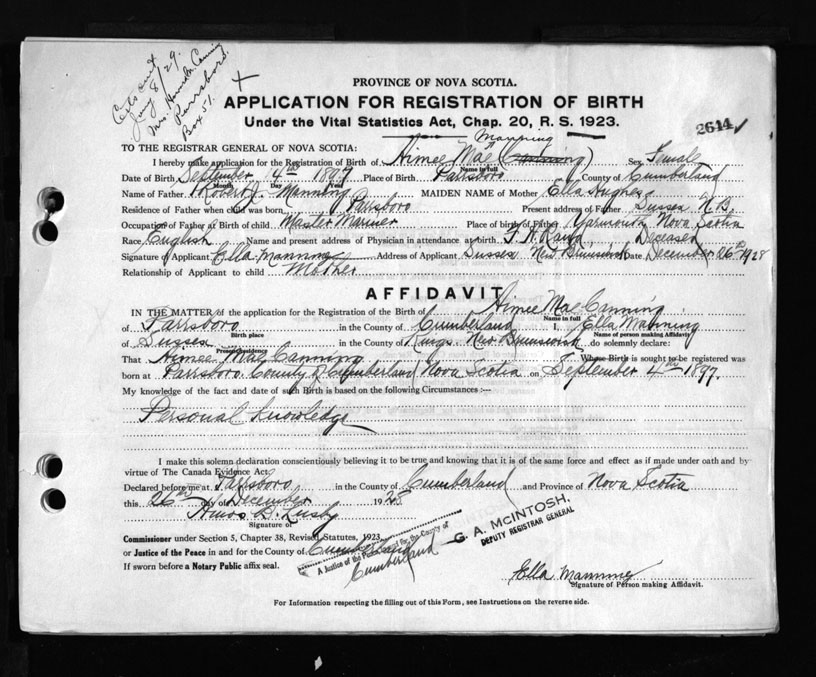 Cert sent
Jany 8/29.
Mrs. Hannah Canning
Parrsboro.
Box 51.
PROVINCE OF NOVA SCOTIA.
APPLICATION FOR REGISTRATION OF BIRTH
Under the Vital Statistics Act, Chap. 20, R. S. 1923.
2614
TO THE REGISTRAR GENERAL OF NOVA SCOTIA:
Manning
I hereby make application for the Registration of Birth of Aimee Mae (Canning) Sex Female
Name in full
Date of Birth September 4th 1897 Place of Birth Parrsboro County of Cumberland
Month Year
Name of Father Robert J. Manning MAIDEN NAME of Mother Ella Hughes
Residence of Father when child was born Parrsboro Present address of Father Sussex N.B.
Occupation of Father at Birth of child Master Mariner Place of birth of Father Yarmouth, Nova Scotia
Race English Name and present address of Physician in attendance at birth F. A. Rand, Deceased
Signature of Applicant Ella Manning Address of Applicant Sussex New Brunswick Date December 26th 1928
Relationship of Applicant to child Mother
AFFIDAVIT
IN THE MATTER of the application for the Registration of the Birth of Aimee Mae Canning
Name in full
of Parrsboro in the County of Cumberland I, Ella Manning
Birth place Name of person making Affidavit
of Sussex in the County of Kings New Brunswick do solemnly declare:
Present residence
That Aimee Mae Canning Whose Birth is sought to be registered was
born at Parrsboro County of Cumberland Nova Scotia on September 4th 1897.
My knowledge of the fact and date of such Birth is based on the following Circumstances :—
Personal Knowledge
I make this solemn declaration conscientiously believing it to be true and knowing that it is of the same force and effect as if made under oath and by
virtue of The Canada Evidence Act.
Declared before me at Parrsboro in the County of Cumberland and Province of Nova Scotia
this 26th day of December 1928
Amos B. Lusby
Signature of
Commissioner under Section 5, Chapter 38, Revised Statutes, 1923
or Justice of the Peace in and for the County of Cumberland
If sworn before a Notary Public affix seal.
A Justice of the Peace in and for the County of
Cumberland
G. A. McINTOSH,
DEPUTY REGISTRAR GENERAL
Ella Manning
Signature of Person making Affidavit.
For Information respecting the filling out of this Form, see Instructions on the reverse side.